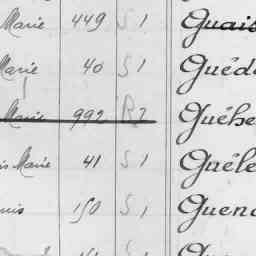 Marie 449 S 1 Quais
Marie 40 S 1 Guéd
Marie 992 R 7 Guéhe
is Marie 41 S 1 Guéle
uis 150 S 1 Guen